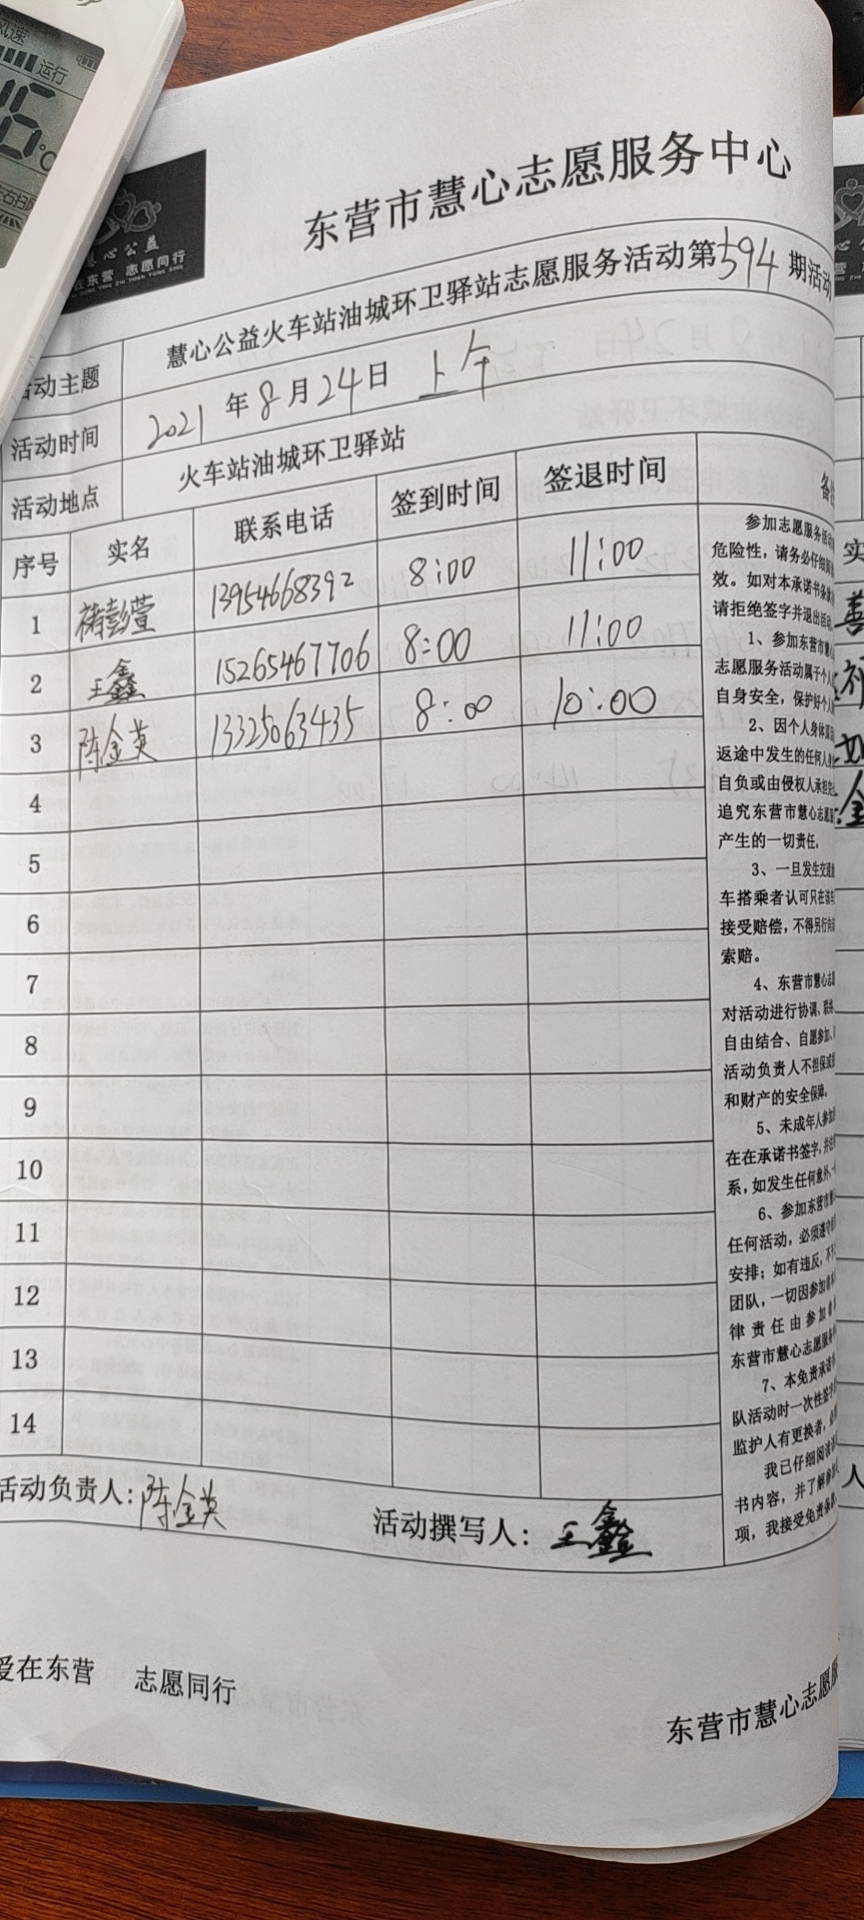 风速
运行
°C
东营市慧心志愿服务中心
慧心公益
在东营 志愿同行
活动主题 慧心公益火车站油城环卫驿站志愿服务活动第594期活动
活动时间 2021年8月24日 上午
活动地点 火车站油城环卫驿站
序号 实名 联系电话 签到时间 签退时间 备
1 褚彭萱 13954668392 8:00 11:00
2 王鑫 15265467706 8:00 11:00
3 陈金英 13325063435 8:00 10:00
4
5
6
7
8
9
10
11
12
13
14
参加志愿服务活动
危险性，请务必仔细阅
效。如对本承诺书条
请拒绝签字并退出活动
1、参加东营市慧心
志愿服务活动属于个人
自身安全，保护好个人
2、因个人身体原
返途中发生的任何人
自负或由侵权人承担
追究东营市慧心志愿
产生的一切责任。
3、一旦发生交通
车搭乘者认可只在该车
接受赔偿，不得另行向
索赔。
4、东营市慧心志愿
对活动进行协调、联络
自由结合、自愿参加、
活动负责人不担保
和财产的安全保障。
5、未成年人参加
在在承诺书签字，并
系，如发生任何意外，
6、参加东营市慧
任何活动，必须遵守
安排；如有违反，不
团队，一切因参加者
律责任由参加者
东营市慧心志愿服务
7、本免责承诺
队活动时一次性签字
监护人有更换者，
我已仔细阅读
书内容，并了解
项，我接受免责条
活动负责人：陈金英 活动撰写人：王鑫
爱在东营 志愿同行 东营市慧心志愿服